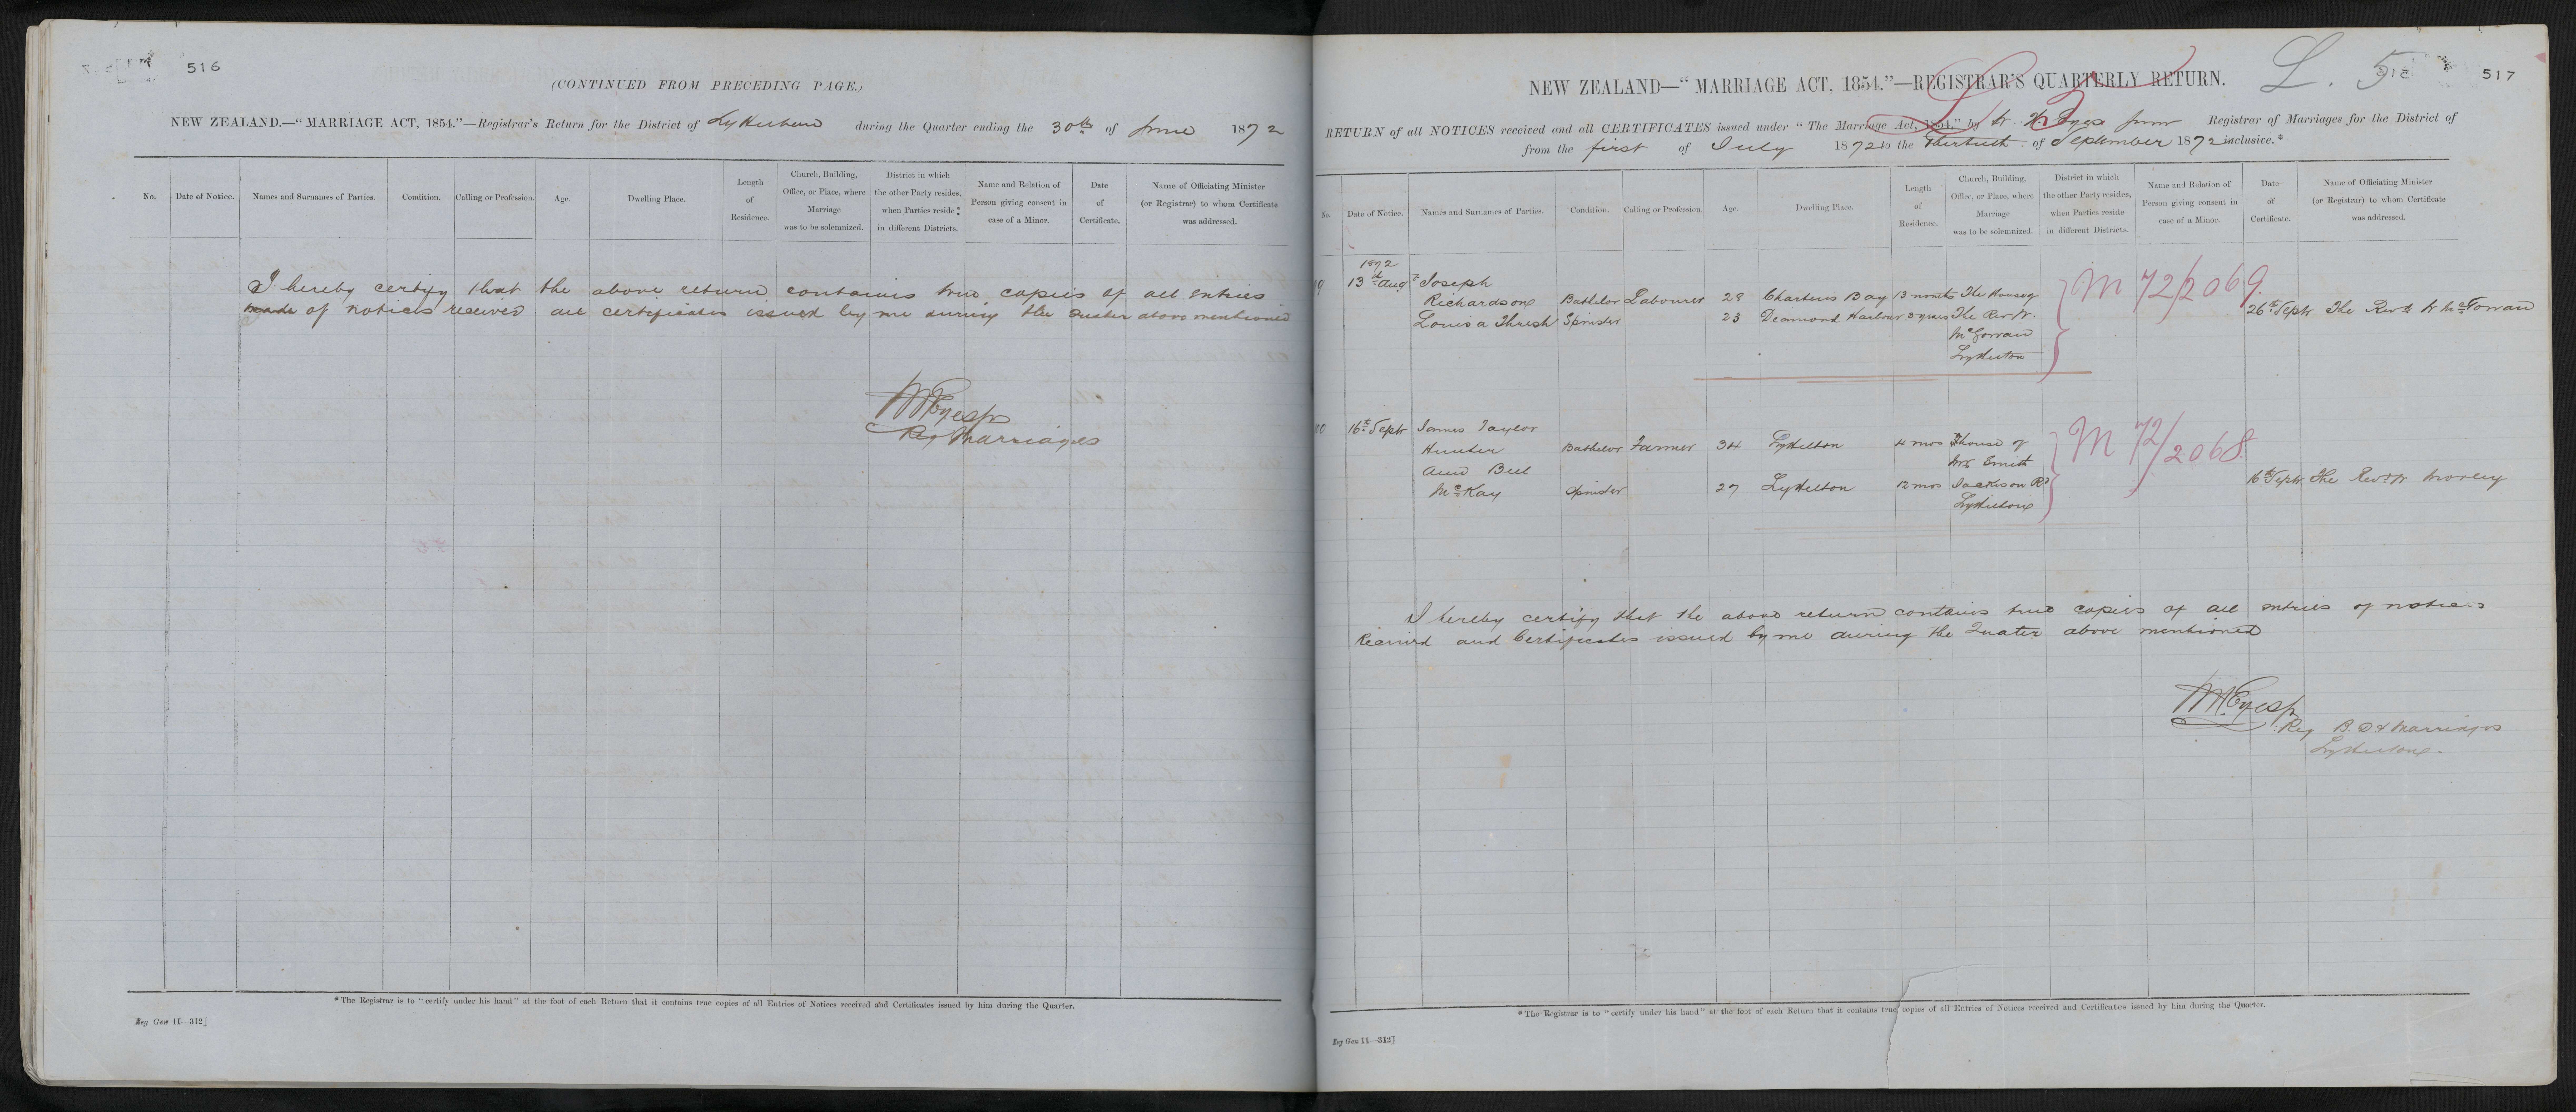 516
(CONTINUED FROM PRECEDING PAGE.)
NEW ZEALAND.—"MARRIAGE ACT, 1854."—Registrar's Return for the District of Lyttelton during the Quarter ending the 30th of June 1872
No. Date of Notice. Names and Surnames of Parties. Condition. Calling or Profession. Age. Dwelling Place. Length of Residence. Church, Building, Office, or Place, where Marriage was to be solemnized. District in which the other Party resides, when Parties reside in different Districts. Name and Relation of Person giving consent in case of a Minor. Date of Certificate. Name of Officiating Minister (or Registrar) to whom Certificate was addressed.
I hereby certify that the above return contains true copies of all entries
made of notices received all certificates issued by me during the Quater above mentioned
Reg Marriages
*The Registrar is to "certify under his hand" at the foot of each Return that it contains true copies of all Entries of Notices received and Certificates issued by him during the Quarter.
Reg Gen 11—312]
L. 5 517
NEW ZEALAND—"MARRIAGE ACT, 1854."—REGISTRAR'S QUARTERLY RETURN.
RETURN of all NOTICES received and all CERTIFICATES issued under "The Marriage Act, 1854," by Registrar of Marriages for the District of
from the first of July 1872 to the Thirtieth of September 1872 inclusive.*
No. Date of Notice. Names and Surnames of Parties. Condition. Calling or Profession. Age. Dwelling Place. Length of Residence. Church, Building, Office, or Place, where Marriage was to be solemnized. District in which the other Party resides, when Parties reside in different Districts. Name and Relation of Person giving consent in case of a Minor. Date of Certificate. Name of Officiating Minister (or Registrar) to whom Certificate was addressed.
1872
13th Augt Joseph
Richardson Bachelor Labourer 28 Charteris Bay 13 months The House of M 72/2069.
Louisa Thresh Spinster 23 Deamond Harbour 3 years The Rev W. 26th Septr The Revd W McGowan
McGowan
Lyttelton
16th Septr James Taylor
Hunter Bachelor Farmer 34 Lyttelton 4 mos house of M 72/2068.
Ann Bell Mrs Smith
McKay Spinster 27 Lyttelton 12 mos Jackson Rd 16th Septr The Revd W Morley
Lyttelton
I hereby certify that the above return contains true copies of all entries of notices
Received and Certificates issued by me during the Quater above mentioned
Reg B. D & Marriages
Lyttelton
*The Registrar is to "certify under his hand" at the foot of each Return that it contains true copies of all Entries of Notices received and Certificates issued by him during the Quarter.
Reg Gen 11—312]